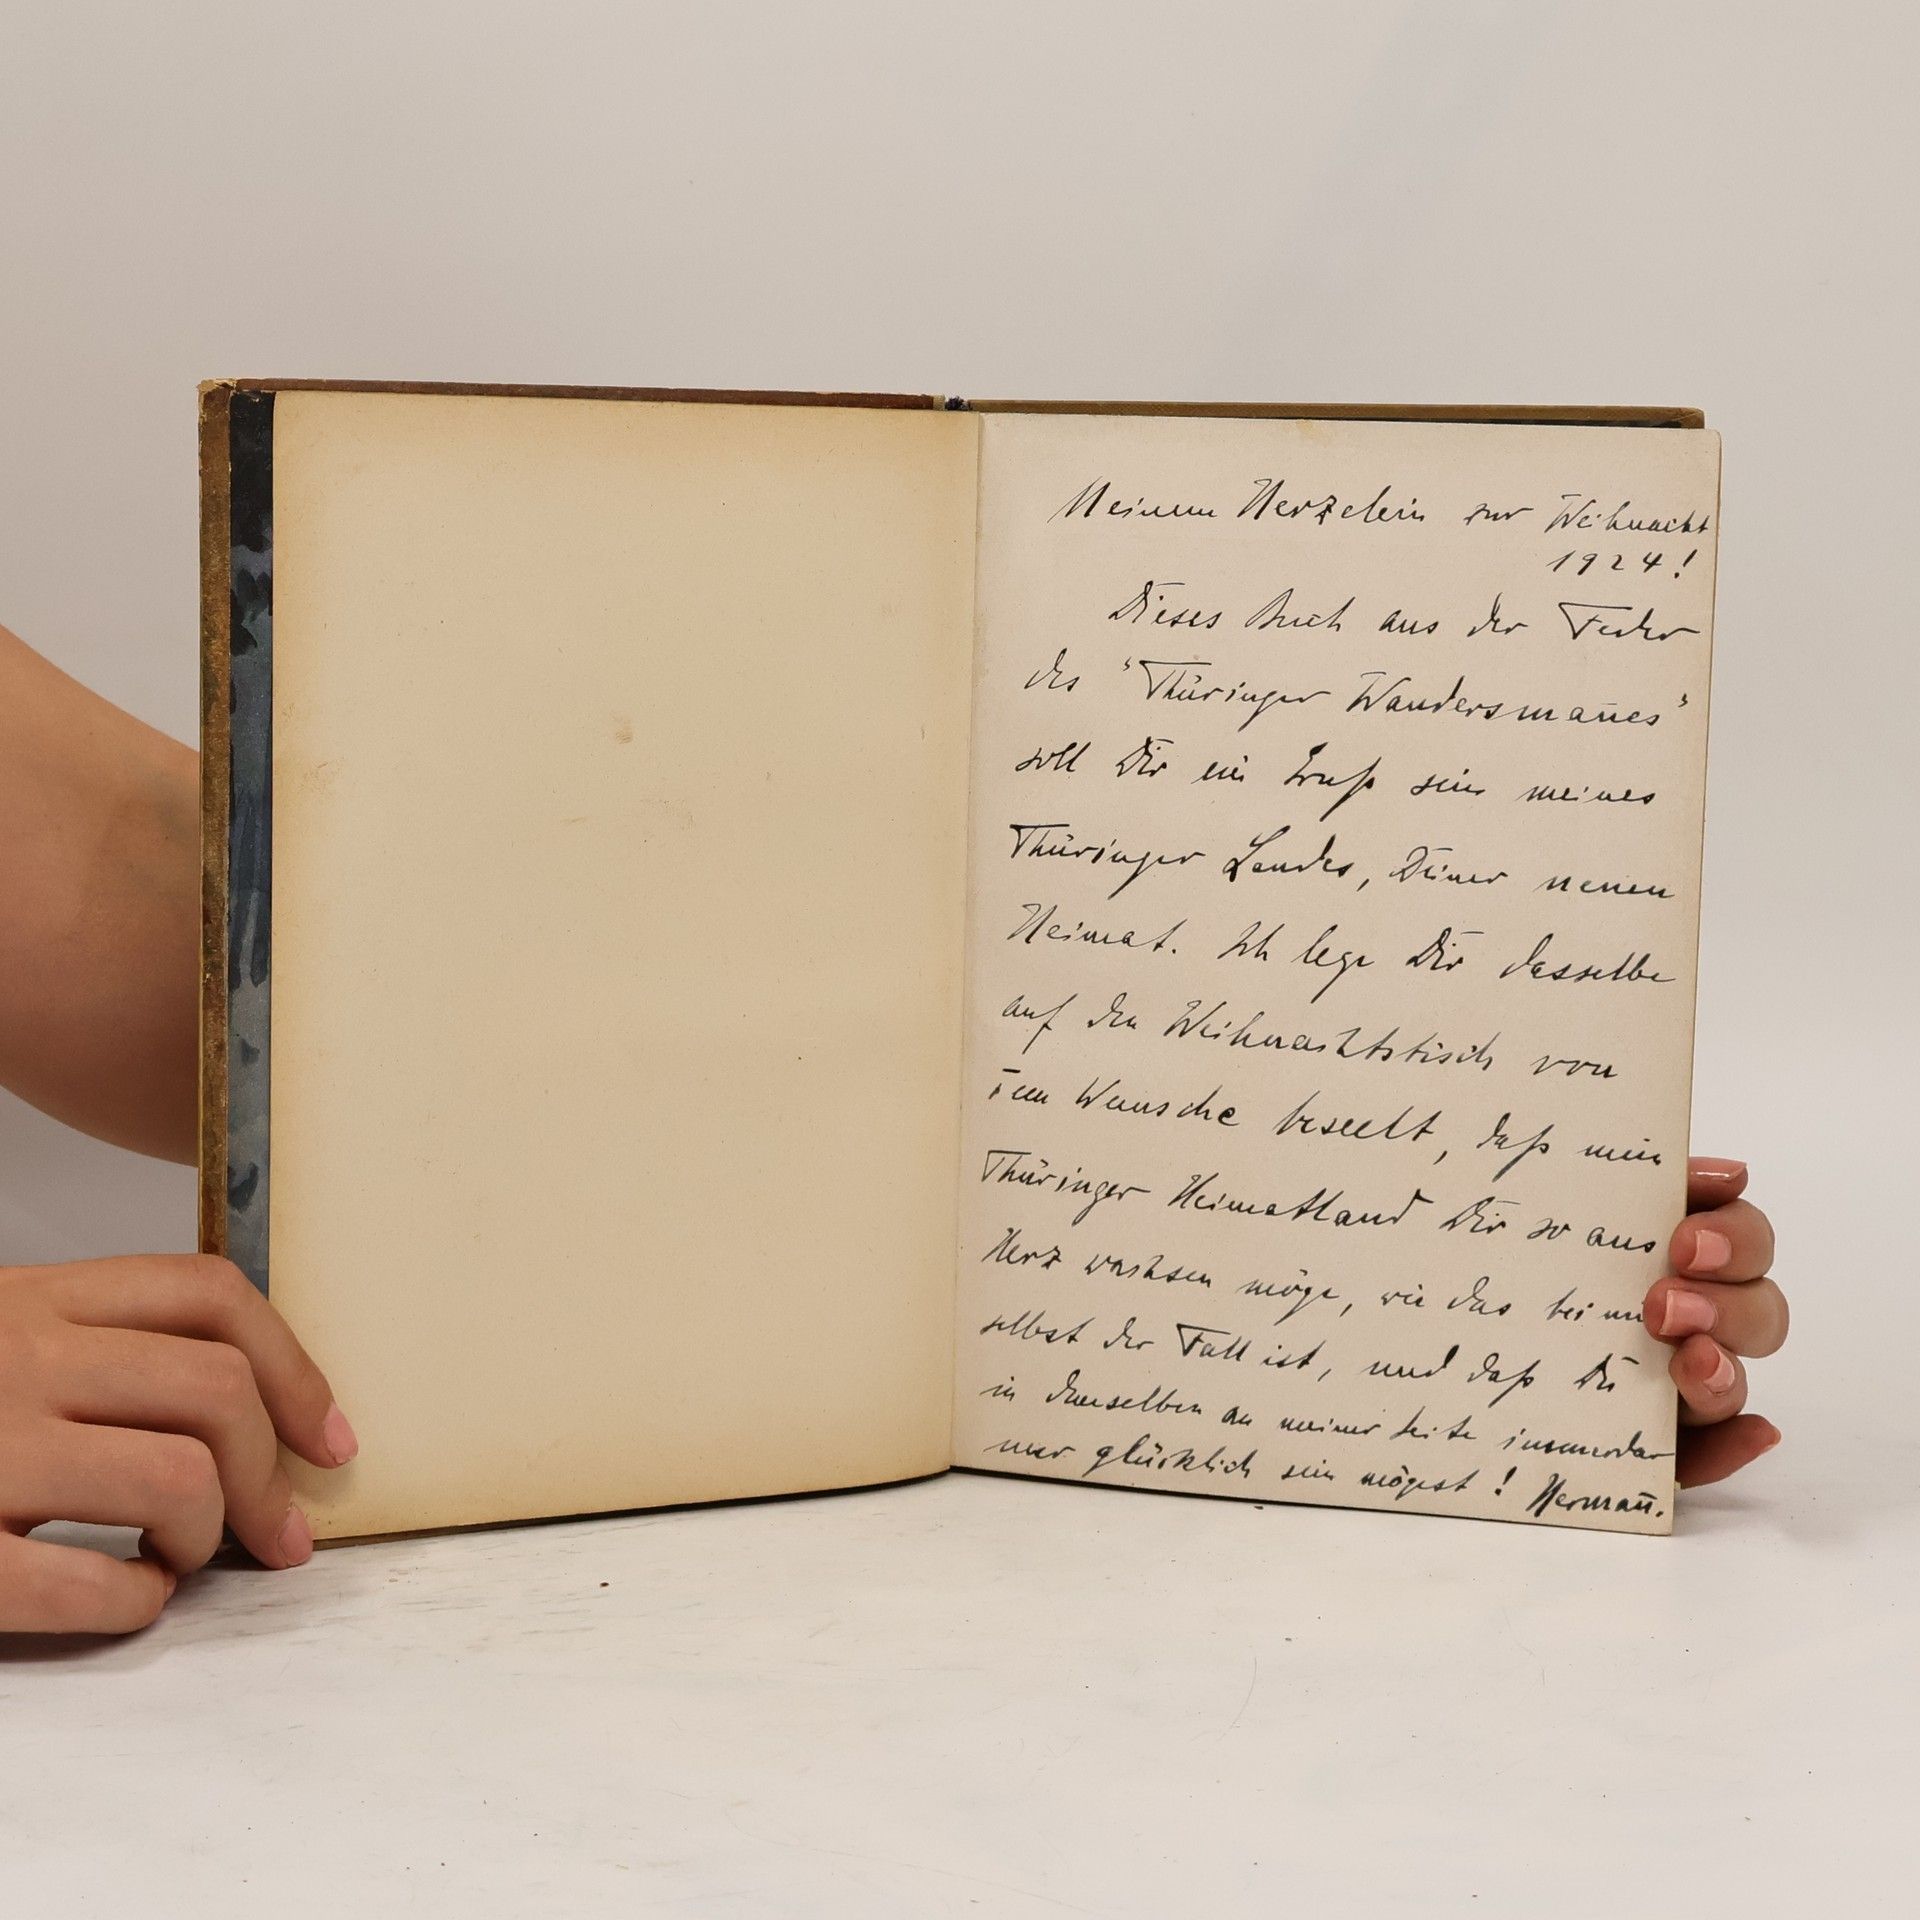 Meinem Herzelein zur Weihnacht
1924!
Dieses Buch aus der Feder
des "Thüringer Wandersman̄es"
soll Dir ein Gruß sein meines
Thüringer Landes, Deiner neuen
Heimat. Ich lege Dir dasselbe
auf den Weihnachtstisch von
dem Wunsche beseelt, daß mein
Thüringer Heimatland Dir so ans
Herz wachsen möge, wie das bei
selbst der Fall ist, und daß Du
in demselben an meiner Seite immerdar
nur glücklich sein mögest! Herman̄.